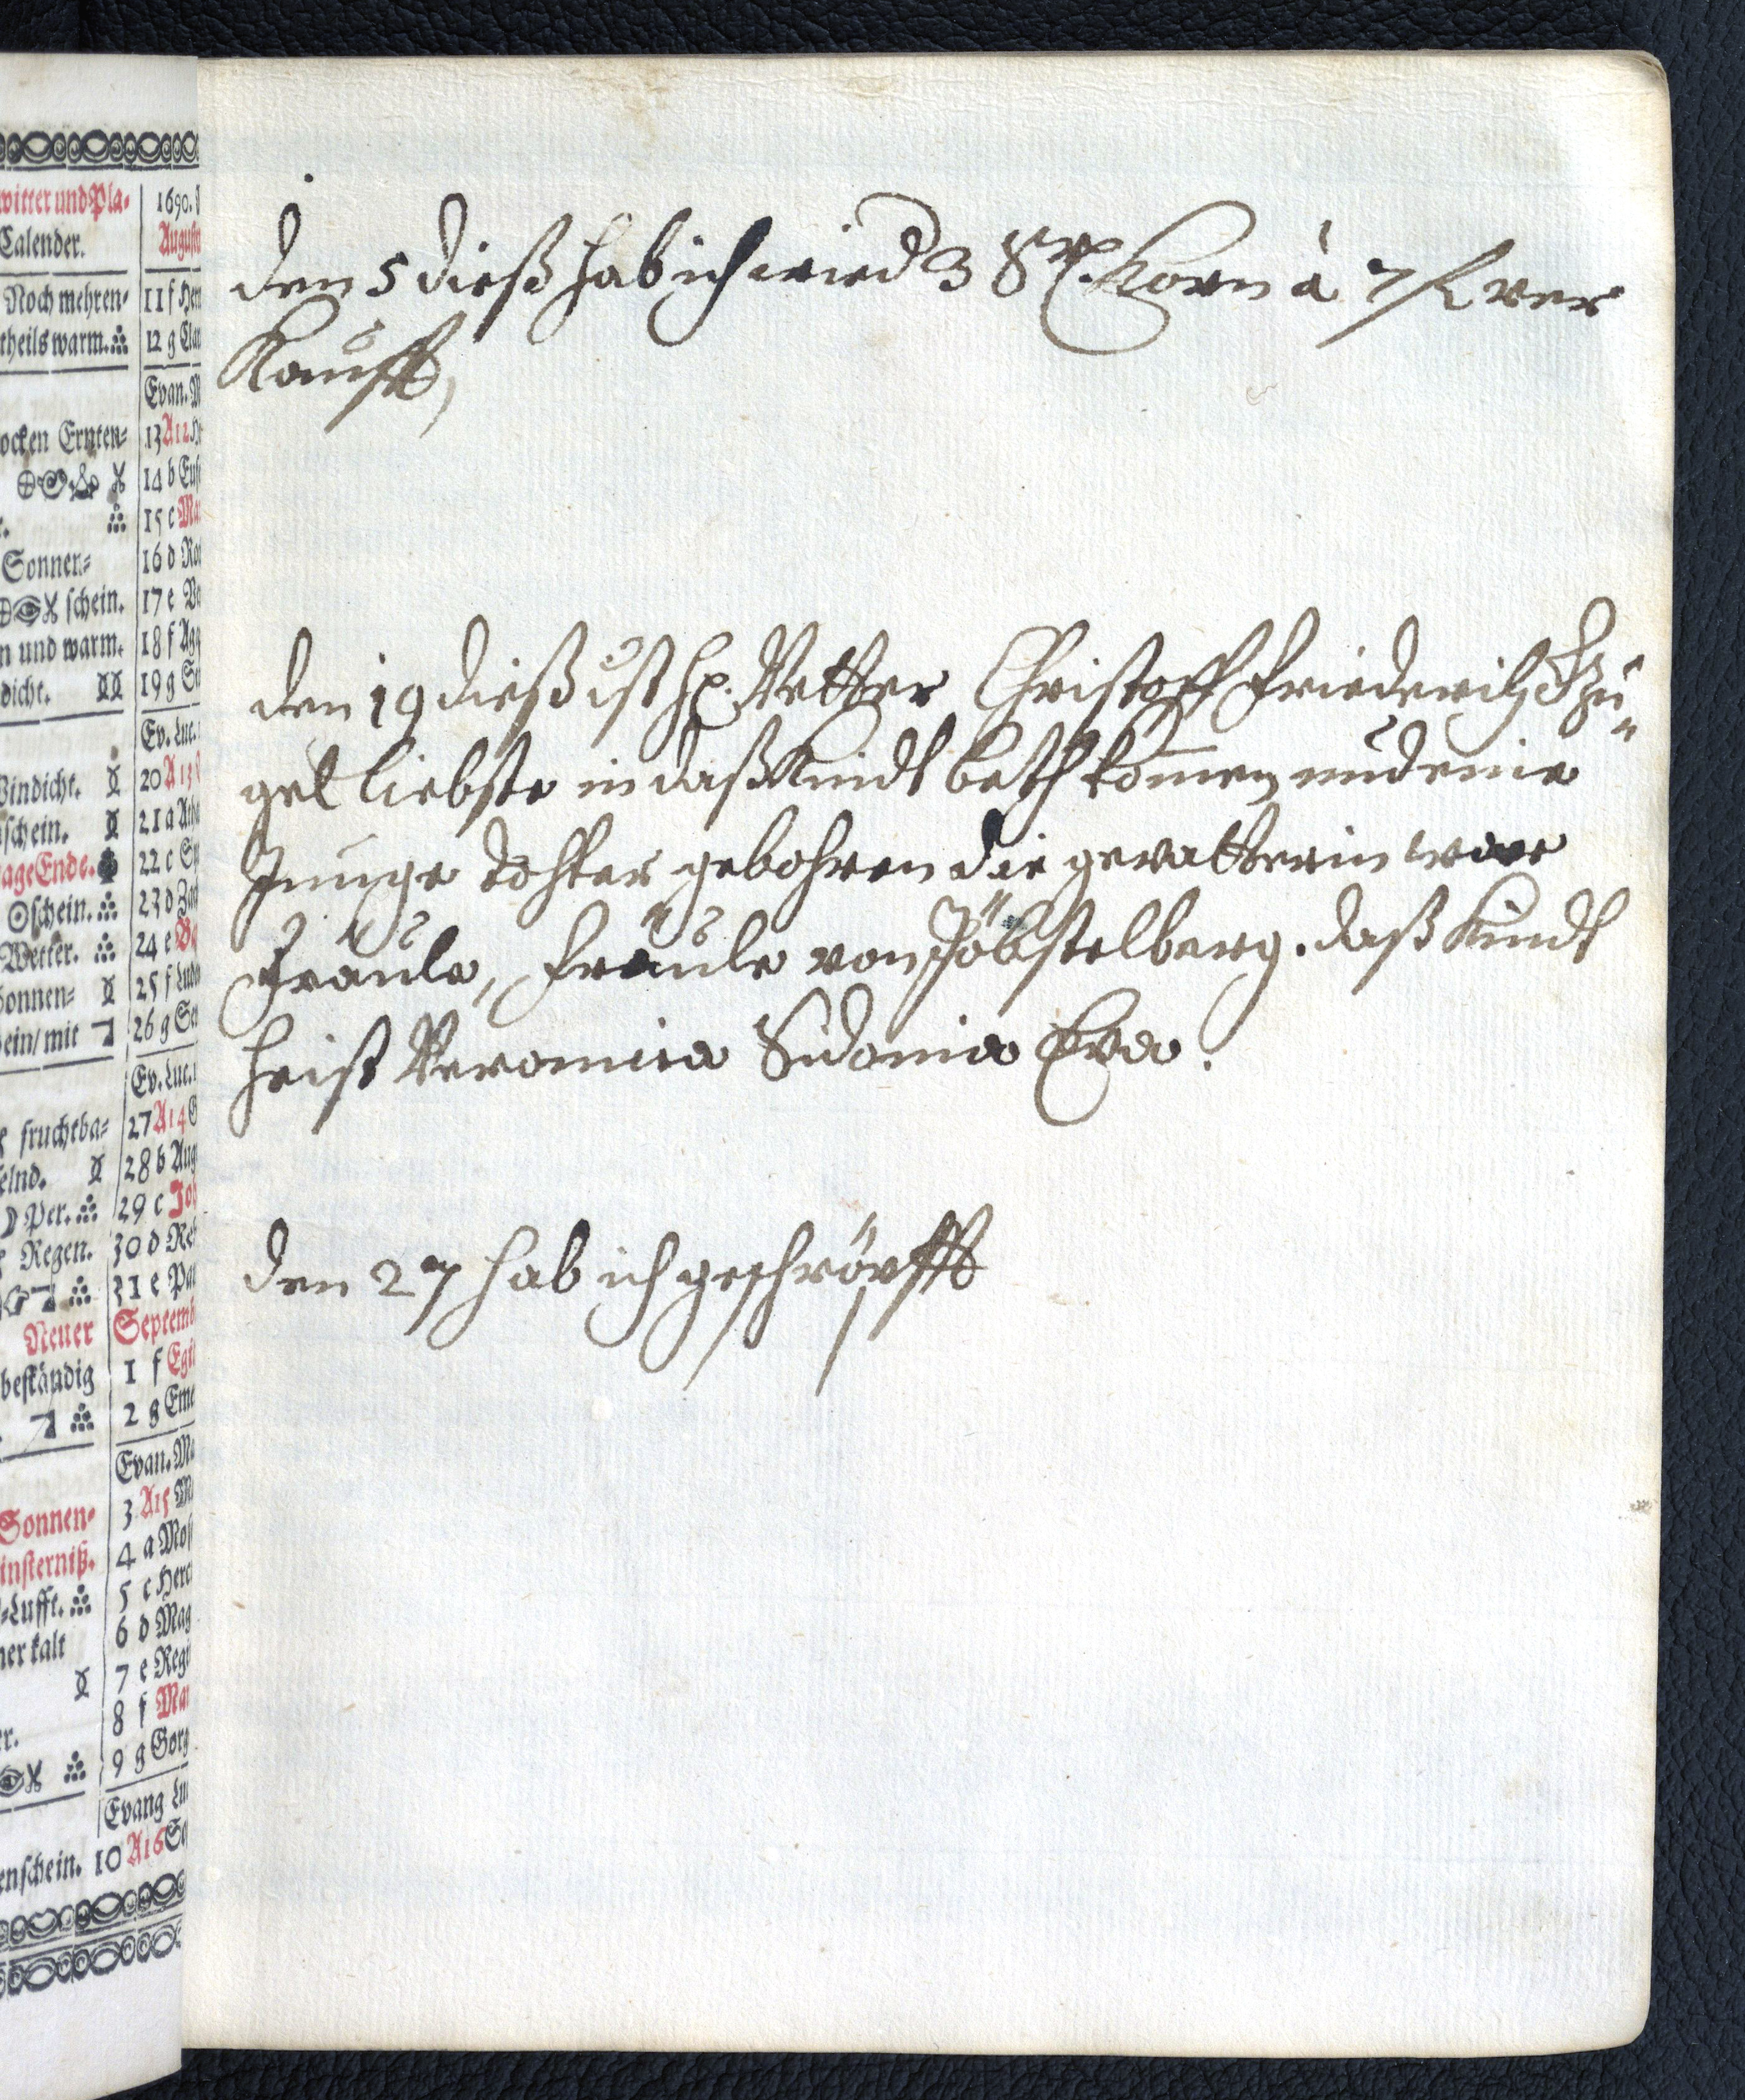 witter und Pla-
Calender.
Noch mehren-
theils warm.
ocken Ernten-
Sonnen-
schein.
n und warm.
dicht.
Windicht.
schein.
age Ende.
schein.
Wetter.
Sonnen-
ein/mit
fruchtba-
elnd.
Per.
Regen.
Neuer
beständig
Sonnen-
insterniß.
-Lufft.
ner kalt
er.
enschein.
1690.
August
11 f Her
12 g Cla
Evan. M
13 A 12
14 b Eus
15 c Ma
16 d Ro
17 e
18 f Aga
19 g Se
Ev. Luc.
20 A 13
21 a
22 c
23 d Za
24 e
25 f Lud
26 g
Ev. Luc.
27 A 14
28 b Aug
29 c Joh
30 d
31 e
Septemb
1 f Egi
2 g
Evan. Ma
3 A 15
4 a Mos
5 c Herc
6 d Mag
7 e Reg
8 f Mar
9 g Gorg
Evang Lu
10 A 16
den 5 dieß hab ich wied 3 Korn à 7 ver
Kaufft,
den 19 dieß ist H. Vetter Christoff Friederich
gel liebste in daß Kindt beth komen und eine
Junge dohter gebohren die gevatterin war
Fräule, Fräule von Jöbstelberg. daß Kindt
heist Veronica Sidonia Eva.
den 27 hab ich geschröpfft